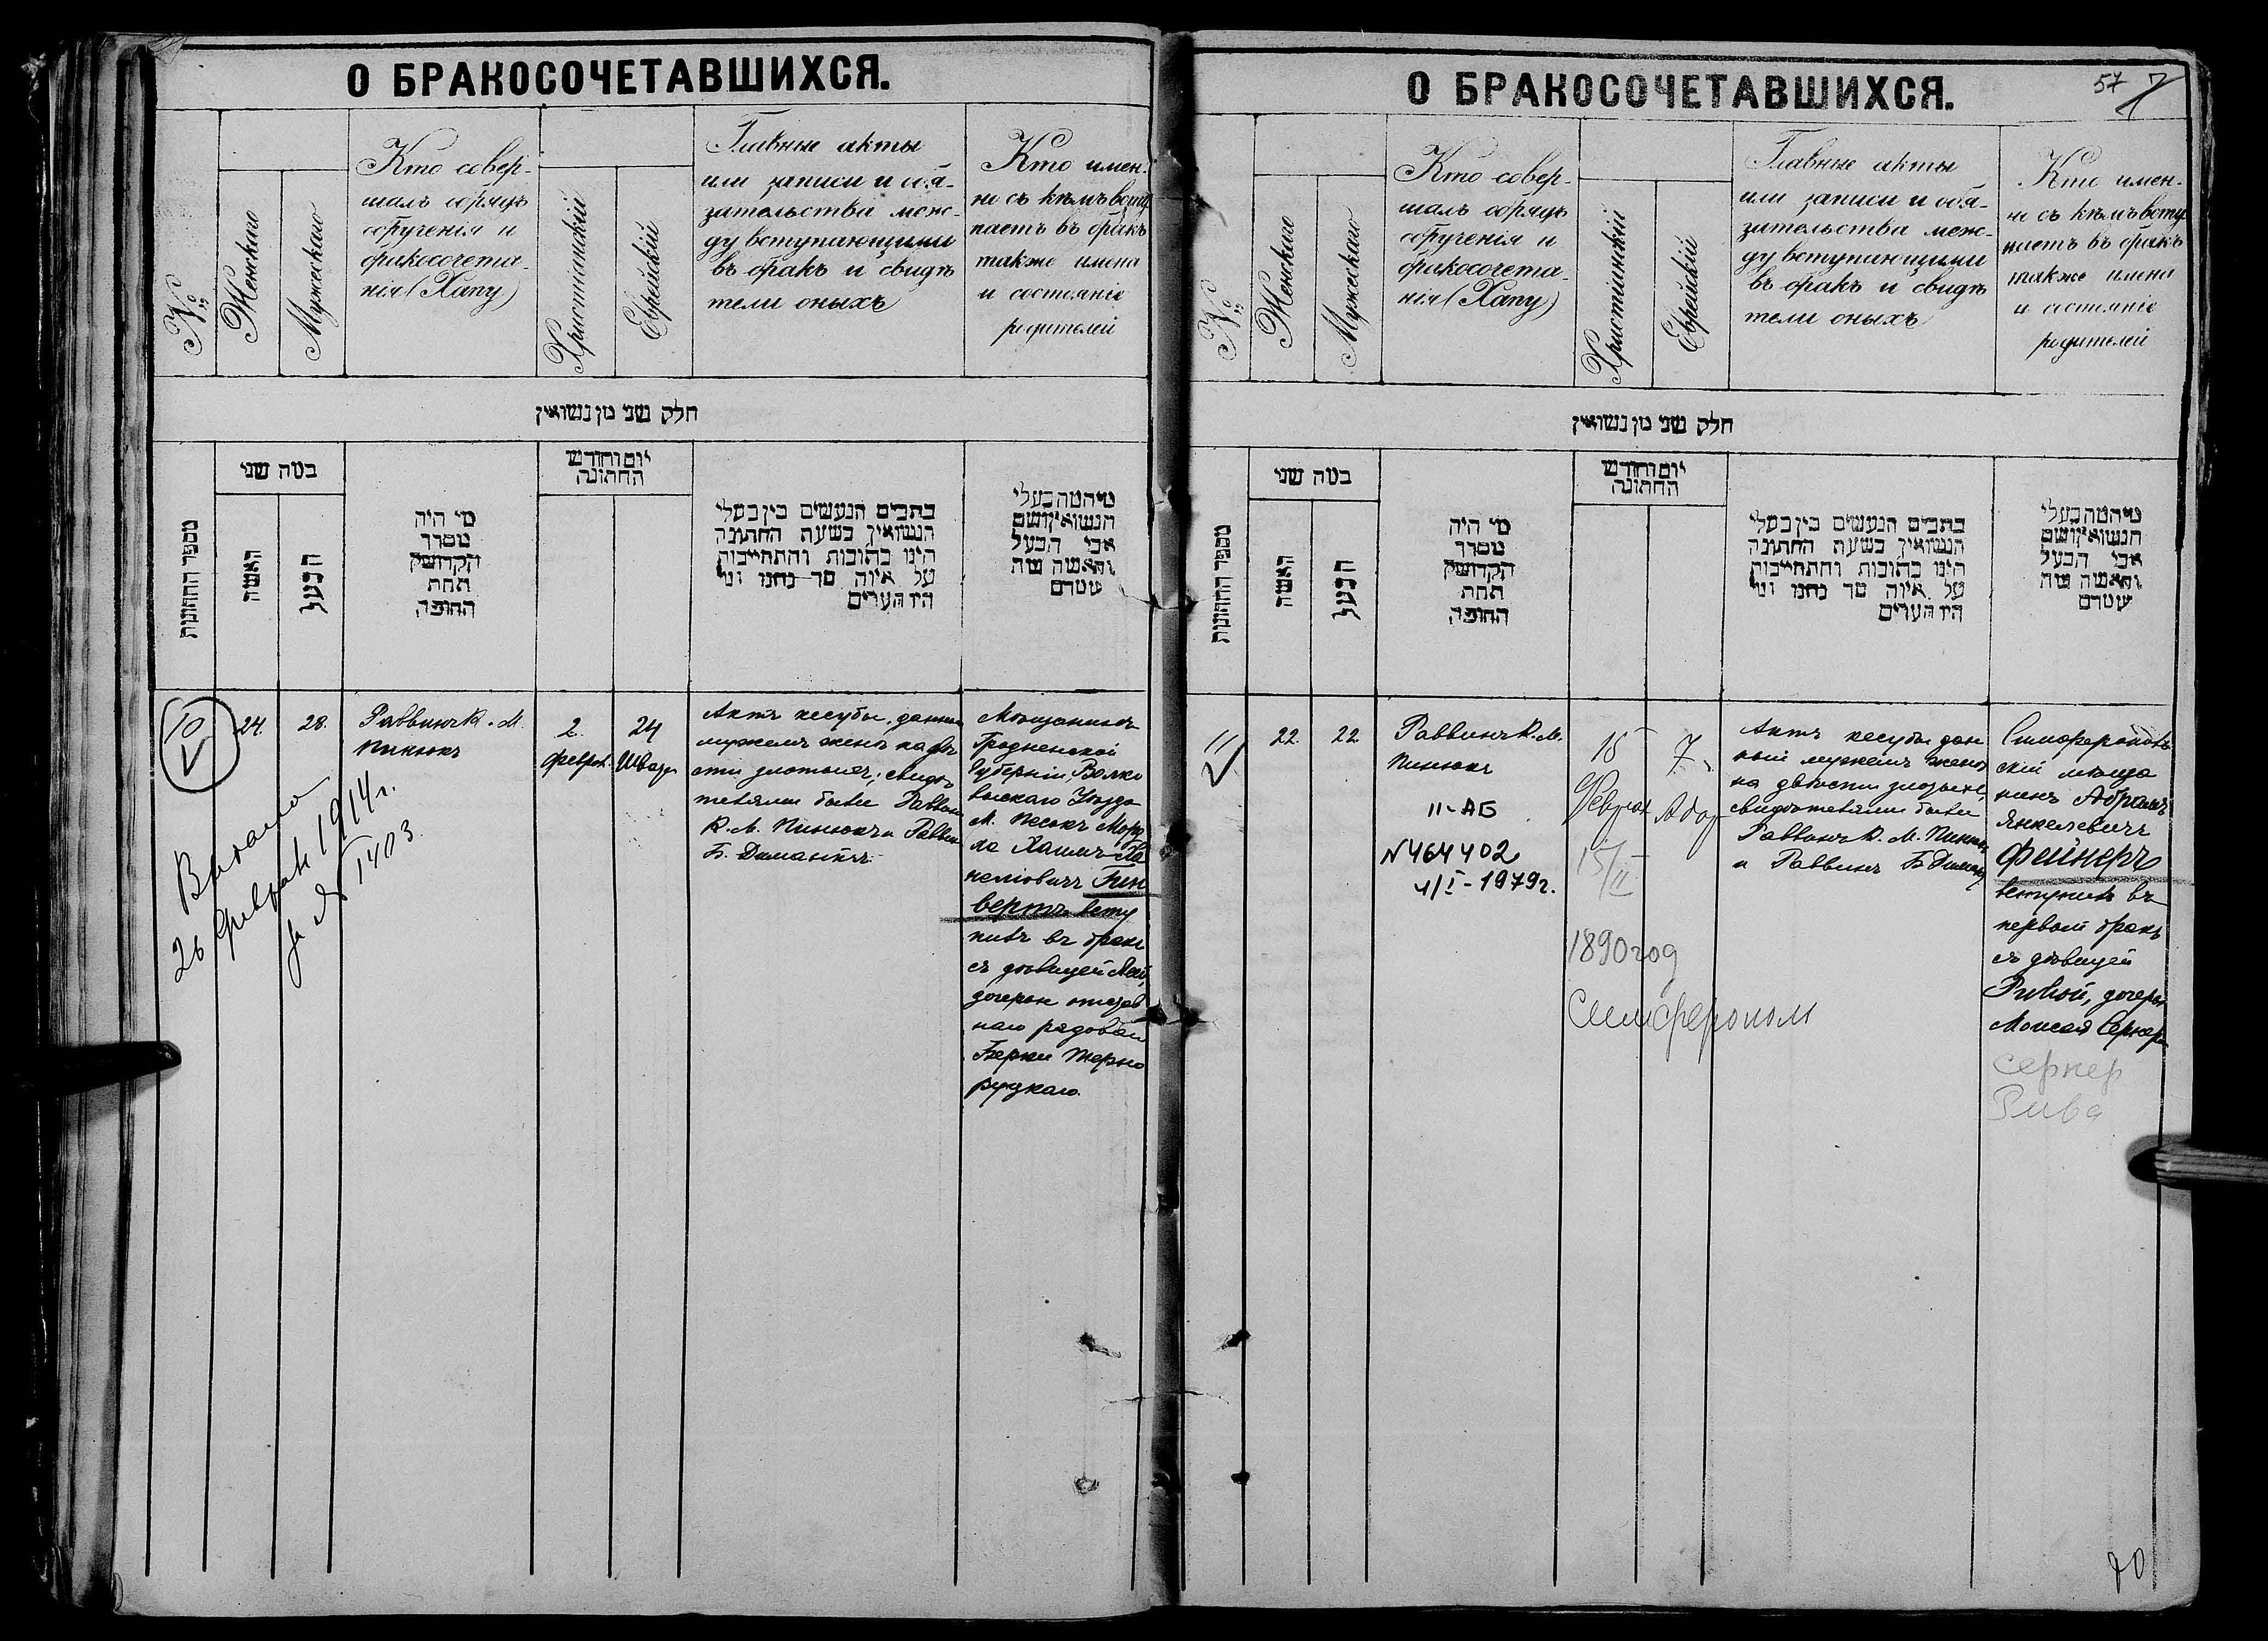 О БРАКОСОЧЕТАВШИХСЯ.
№
Женскаго
Мужескаго
Кто совер-
шалъ обрядъ
обрученія и
бракосочета-
нія (Хапу)
Христіанскій
Еврейскій
Главные акты
или записи и обя-
зательства меж-
ду вступающими
въ бракъ и свидѣ
тели оныхъ
Кто имен-
но съ кѣмъ всту
паетъ въ бракъ
также имена
и состояніе
родителей
חלק שני מן נשואין
מספר החתונות
במה שני
האשה
הבעל
מי היה
מסדר
הקדושין
תחת
החופה
יום וחודש
החתונה
כתבים הנעשים בין בעלי
הנשואין בשעת החתונה
היינו כתובות והתחייבות
על איזה סך
היו העדים
מי המה בעלי
הנשואין ושם
אבי הבעל
והאשה
10
24.
28.
Раввинъ К. М.
Пинюкъ
2
Феврал.
24
Шватъ
Актъ кесубы, данный
мужемъ женѣ на двѣ
сти злотыхъ; свидѣ
телями были Раввинъ
К. М. Пинюкъ и Раввинъ
Б. Димантъ.
Мѣщанинъ
Гродненской
Губерніи, Волко
выскаго Уѣзда
М. Песокъ Морд
ха Хаимъ
вертъ всту
пилъ въ бракъ
съ дѣвицей
дочерью отстав
наго рядоваго
Берки Черно
руцкаго.
Выдано
26 февраля 1914 г.
за № 1403
О БРАКОСОЧЕТАВШИХСЯ.
57
№
Женскаго
Мужескаго
Кто совер-
шалъ обрядъ
обрученія и
бракосочета-
нія (Хапу)
Христіанскій
Еврейскій
Главные акты
или записи и обя-
зательства меж-
ду вступающими
въ бракъ и свидѣ
тели оныхъ
Кто имен-
но съ кѣмъ всту
паетъ въ бракъ
также имена
и состояніе
родителей
חלק שני מן נשואין
מספר החתונות
במה שני
האשה
הבעל
מי היה
מסדר
הקדושין
תחת
החופה
יום וחודש
החתונה
כתבים הנעשים בין בעלי
הנשואין בשעת החתונה
היינו כתובות והתחייבות
על איזה סך
היו העדים
מי המה בעלי
הנשואין ושם
אבי הבעל
והאשה
11
22
22
Раввинъ К. М.
Пинюкъ
II-АБ
N 464402
4/I-1979г.
15
Феврал
15/II
7
Адар
1890 год
Симферополь
Актъ кесубы дан
ный мужемъ женѣ
на двѣсти злотыхъ;
свидѣтелями были
Раввинъ К. М. Пинюкъ
и Раввинъ Б. Димантъ
Симферополь
скій мѣща
нинъ Абрамъ
Янкелевичъ
Фейнеръ
вступилъ въ
первый бракъ
съ дѣвицей
Ривой, дочерью
Моисея Сернера
Сернер
Рива